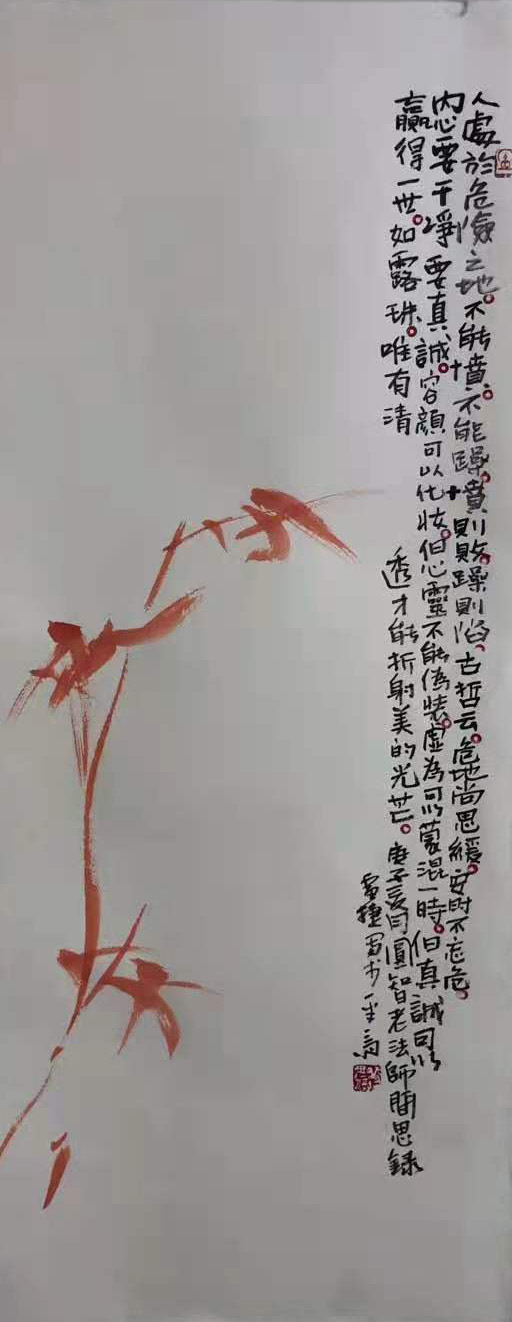 人處於危險之地。不能憤。不能躁。憤則敗。躁則陷。古哲云。危地尚思緩。安時不忘危。
內心要干淨。要真誠。容顏可以化妝。但心靈不能偽裝。虛為可以蒙混一時。但真誠可以
贏得一世。如露珠。唯有清
透才能折射美的光芒。庚子夏月圓智老法師閒思錄